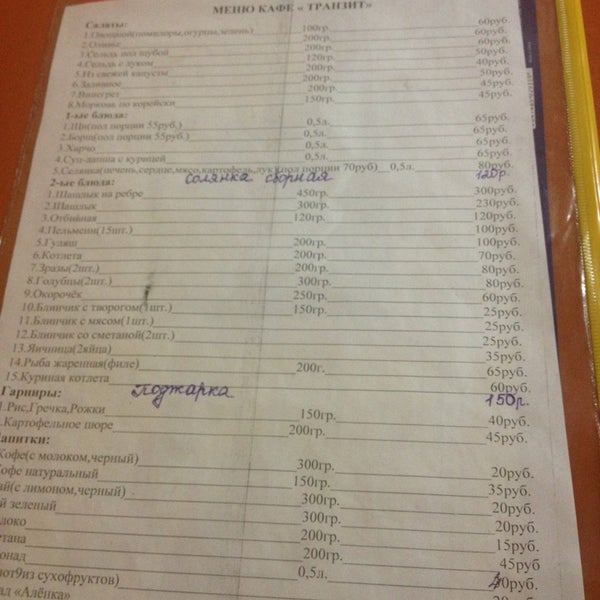 МЕНЮ КАФЕ « ТРАНЗИТ»
Салаты:
1.Овощной(помидоры,огурцы,зелень) 100гр. 60руб.
2.Оливье 200гр. 60руб.
3.Сельдь под шубой 200гр. 60руб.
4.Сельдь с луком 120гр. 50руб.
5.Из свежей капусты 200гр. 40руб.
6.Заливное 200гр. 50руб.
7.Винегрет 200гр. 45руб.
8.Морковь по корейски 150гр. 45руб.
1-ые блюда:
1.Щи(пол порции 55руб.) 0,5л. 65руб.
2.Борщ(пол порции 55руб.) 0,5л. 65руб.
3.Харчо 0,5л. 65руб.
4.Суп-лапша с курицей 0,5л. 65руб.
5.Селянка(печень,сердце,мясо,картофель,лук)(пол порции 70руб) 0,5л. 80руб.
солянка сборная 120р.
2-ые блюда:
1.Шашлык на ребре 450гр. 300руб.
2.Шашлык 300гр. 230руб.
3.Отбивная 120гр. 120руб.
4.Пельмени(15шт.) 100руб.
5.Гуляш 200гр. 100руб.
6.Котлета 200гр. 70руб.
7.Зразы(2шт.) 200гр. 80руб.
8.Голубцы(2шт.) 300гр. 80руб.
9.Окорочёк 250гр. 60руб.
10.Блинчик с творогом(1шт.) 150гр. 25руб.
11.Блинчик с мясом(1шт.) 25руб.
12.Блинчик со сметаной(2шт.) 25руб.
13.Яичница(2яйца) 35руб.
14.Рыба жаренная(филе) 200г. 65руб.
15.Куриная котлета 60руб.
Поджарка 150р.
Гарниры:
1.Рис,Гречка,Рожки 150гр. 40руб.
.Картофельное пюре 200гр. 45руб.
апитки:
Кофе(с молоком,черный) 300гр. 20руб.
офе натуральный 150гр. 35руб.
ай(с лимоном,черный) 300гр. 20руб.
й зеленый 300гр. 20руб.
локо 200гр. 15руб.
етана 200гр. 45руб
онад 0,5л. 40руб.
пот9из сухофруктов)
ад «Алёнка»